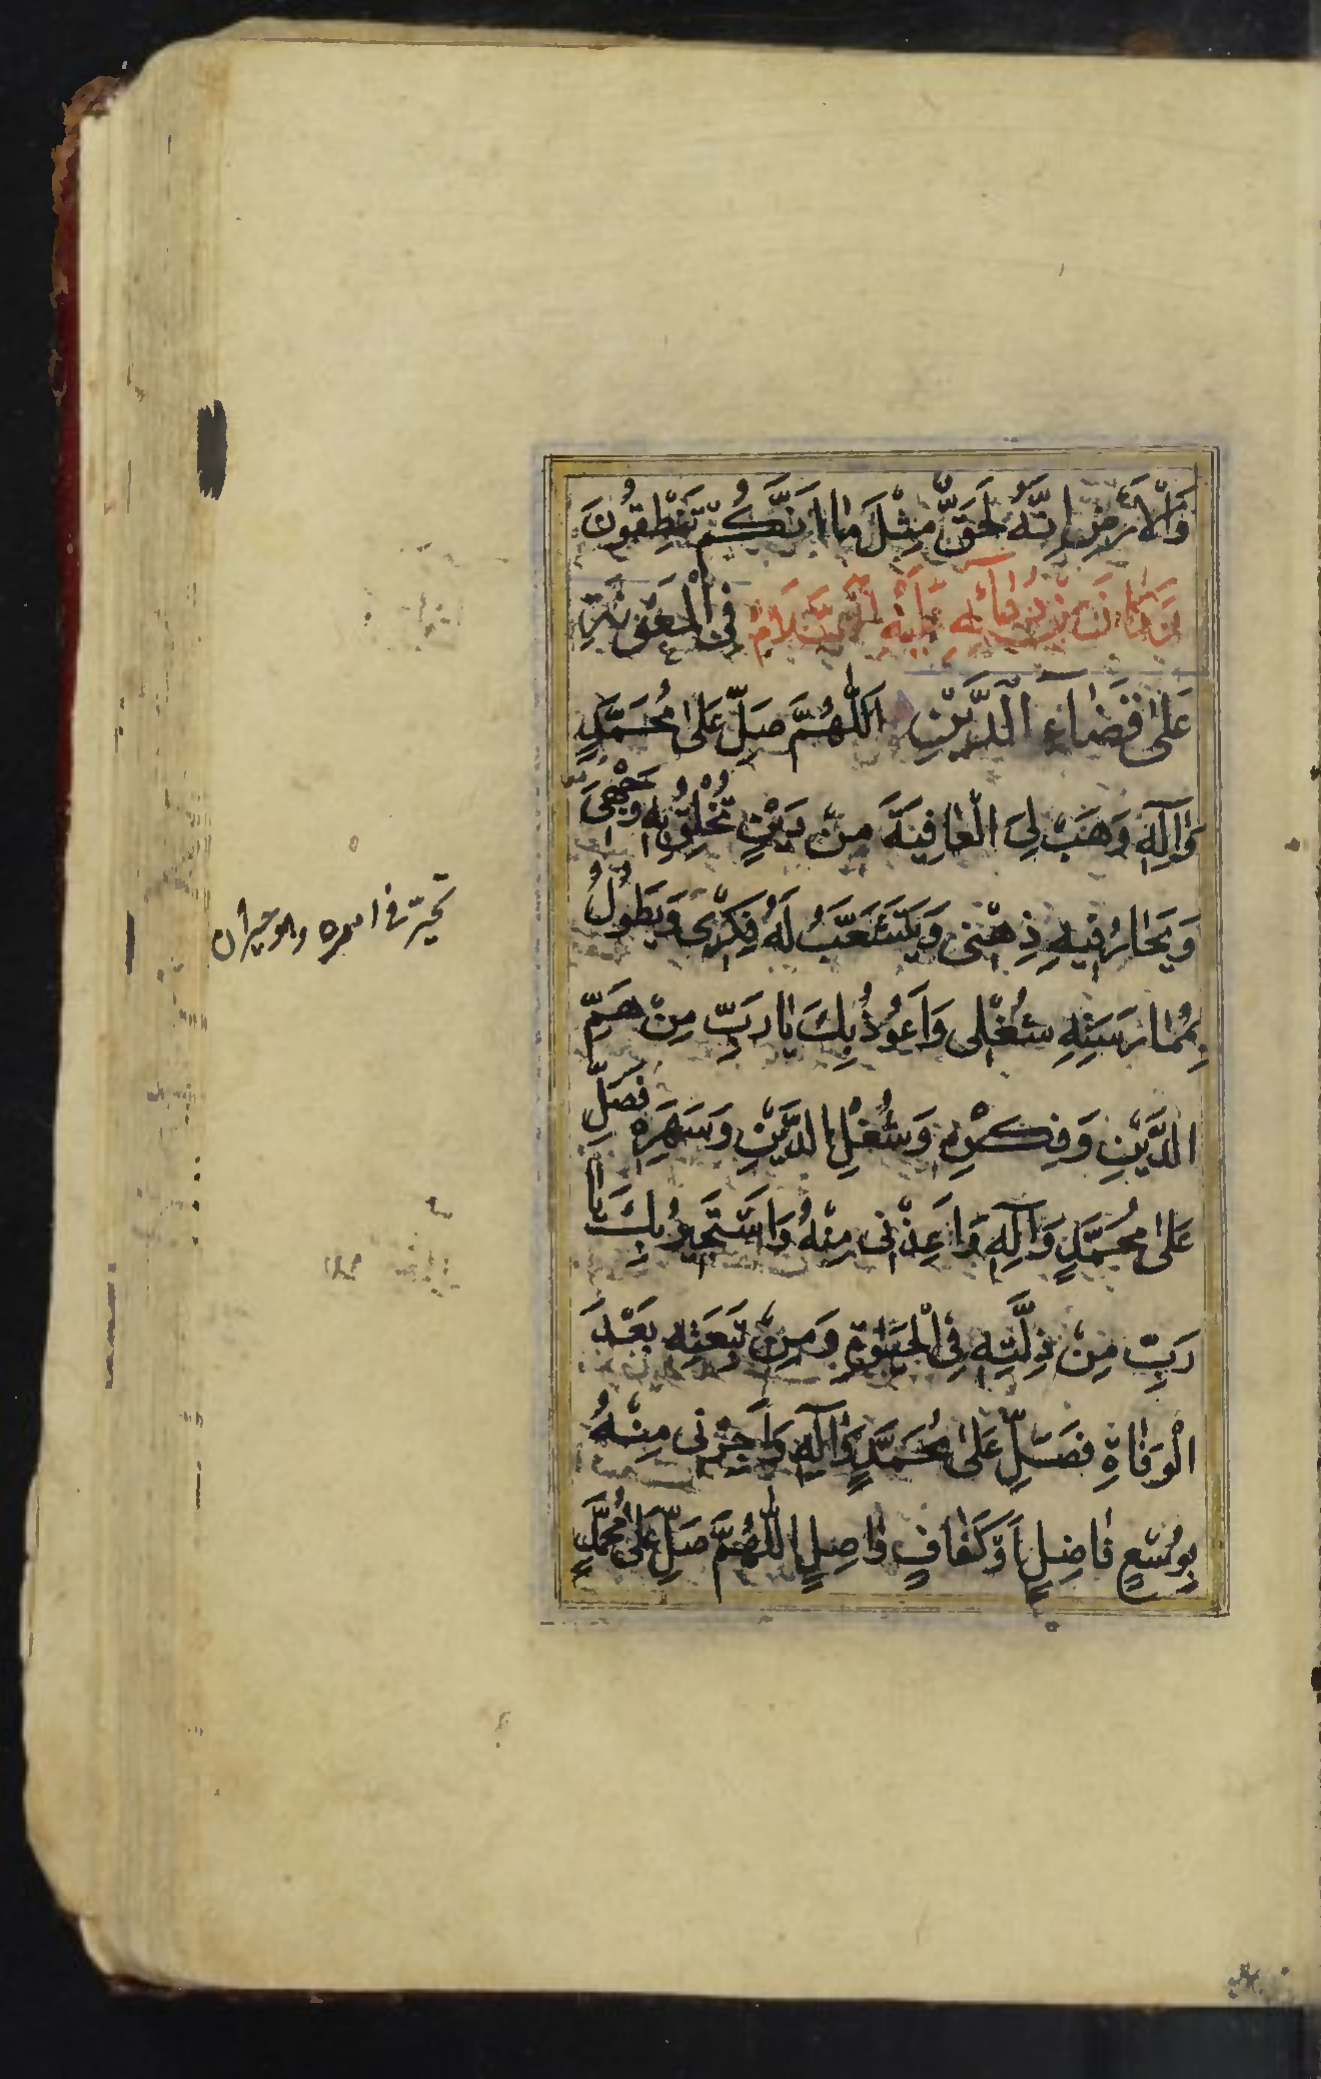 وَالْاَرْضِ اِنَّهُ لَحَقٌّ مِثْلَ مٰا اَنَّكُمْ تَنْطِقُونَ
وَكٰانَ مِنْ دُعٰائِهِ عَلَيْهِ السَّلَامُ فِى الْمَعُونَةِ
عَلىٰ قَضٰاءِ الدَّيْنِ اَللّٰهُمَّ صَلِّ عَلىٰ مُحَمَّدٍ
وَاٰلِهِ وَهَبْ لِىَ الْعٰافِيَةَ مِنْ دَيْنٍ تُخْلِقُ بِهِ وَجْهِىَ
وَيَحٰارُ فيهِ ذِهْنى وَيَتَشَعَّبُ لَهُ فِكْرى وَيَطُولُ
بِمُمٰارَسَتِهِ شُغْلى وَاَعُوذُ بِكَ يٰا رَبِّ مِنْ هَمِّ
الدَّيْنِ وَفِكْرِهِ وَشُغْلِ الدَّيْنِ وَسَهَرِهِ فَصَلِّ
عَلىٰ مُحَمَّدٍ وَاٰلِهِ وَاَعِذْنى مِنْهُ وَاَسْتَجيرُ بِكَ يٰا
رَبِّ مِنْ ذِلَّتِهِ فِى الْحَيٰوةِ وَمِنْ تَبِعَتِهِ بَعْدَ
الْوَفٰاةِ فَصَلِّ عَلىٰ مُحَمَّدٍ وَاٰلِهِ وَاَجِرْنى مِنْهُ
بِوُسْعٍ فٰاضِلٍ اَوْ كَفٰافٍ وٰاصِلٍ اللّٰهُمَّ صَلِّ عَلىٰ مُحَمَّدٍ
تحيّر فى امره وهو حيران